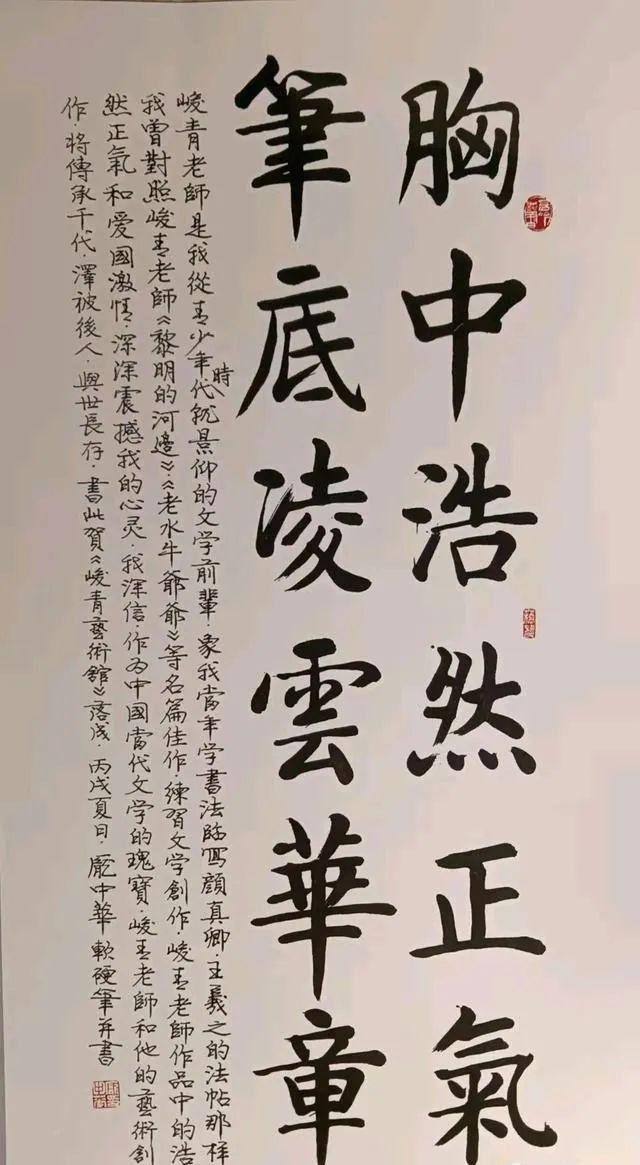 胸中浩然正氣
筆底凌雲華章
峻青老師是我從青少年時代就景仰的文学前輩．象我當年学書法臨寫顔真卿．王羲之的法帖那样
我曾對照峻青老師《黎明的河邊》．《老水牛爷爷》等名篇佳作．練習文学創作．峻青老師作品中的浩
然正氣和爱國激情．深深震撼我的心灵．我深信．作为中國當代文学的瑰寶．峻青老師和他的藝術創
作．將傳承千代．澤被後人．與世長存．書此賀《峻青藝術館》落成．丙戌夏日．龐中華軟硬筆并書